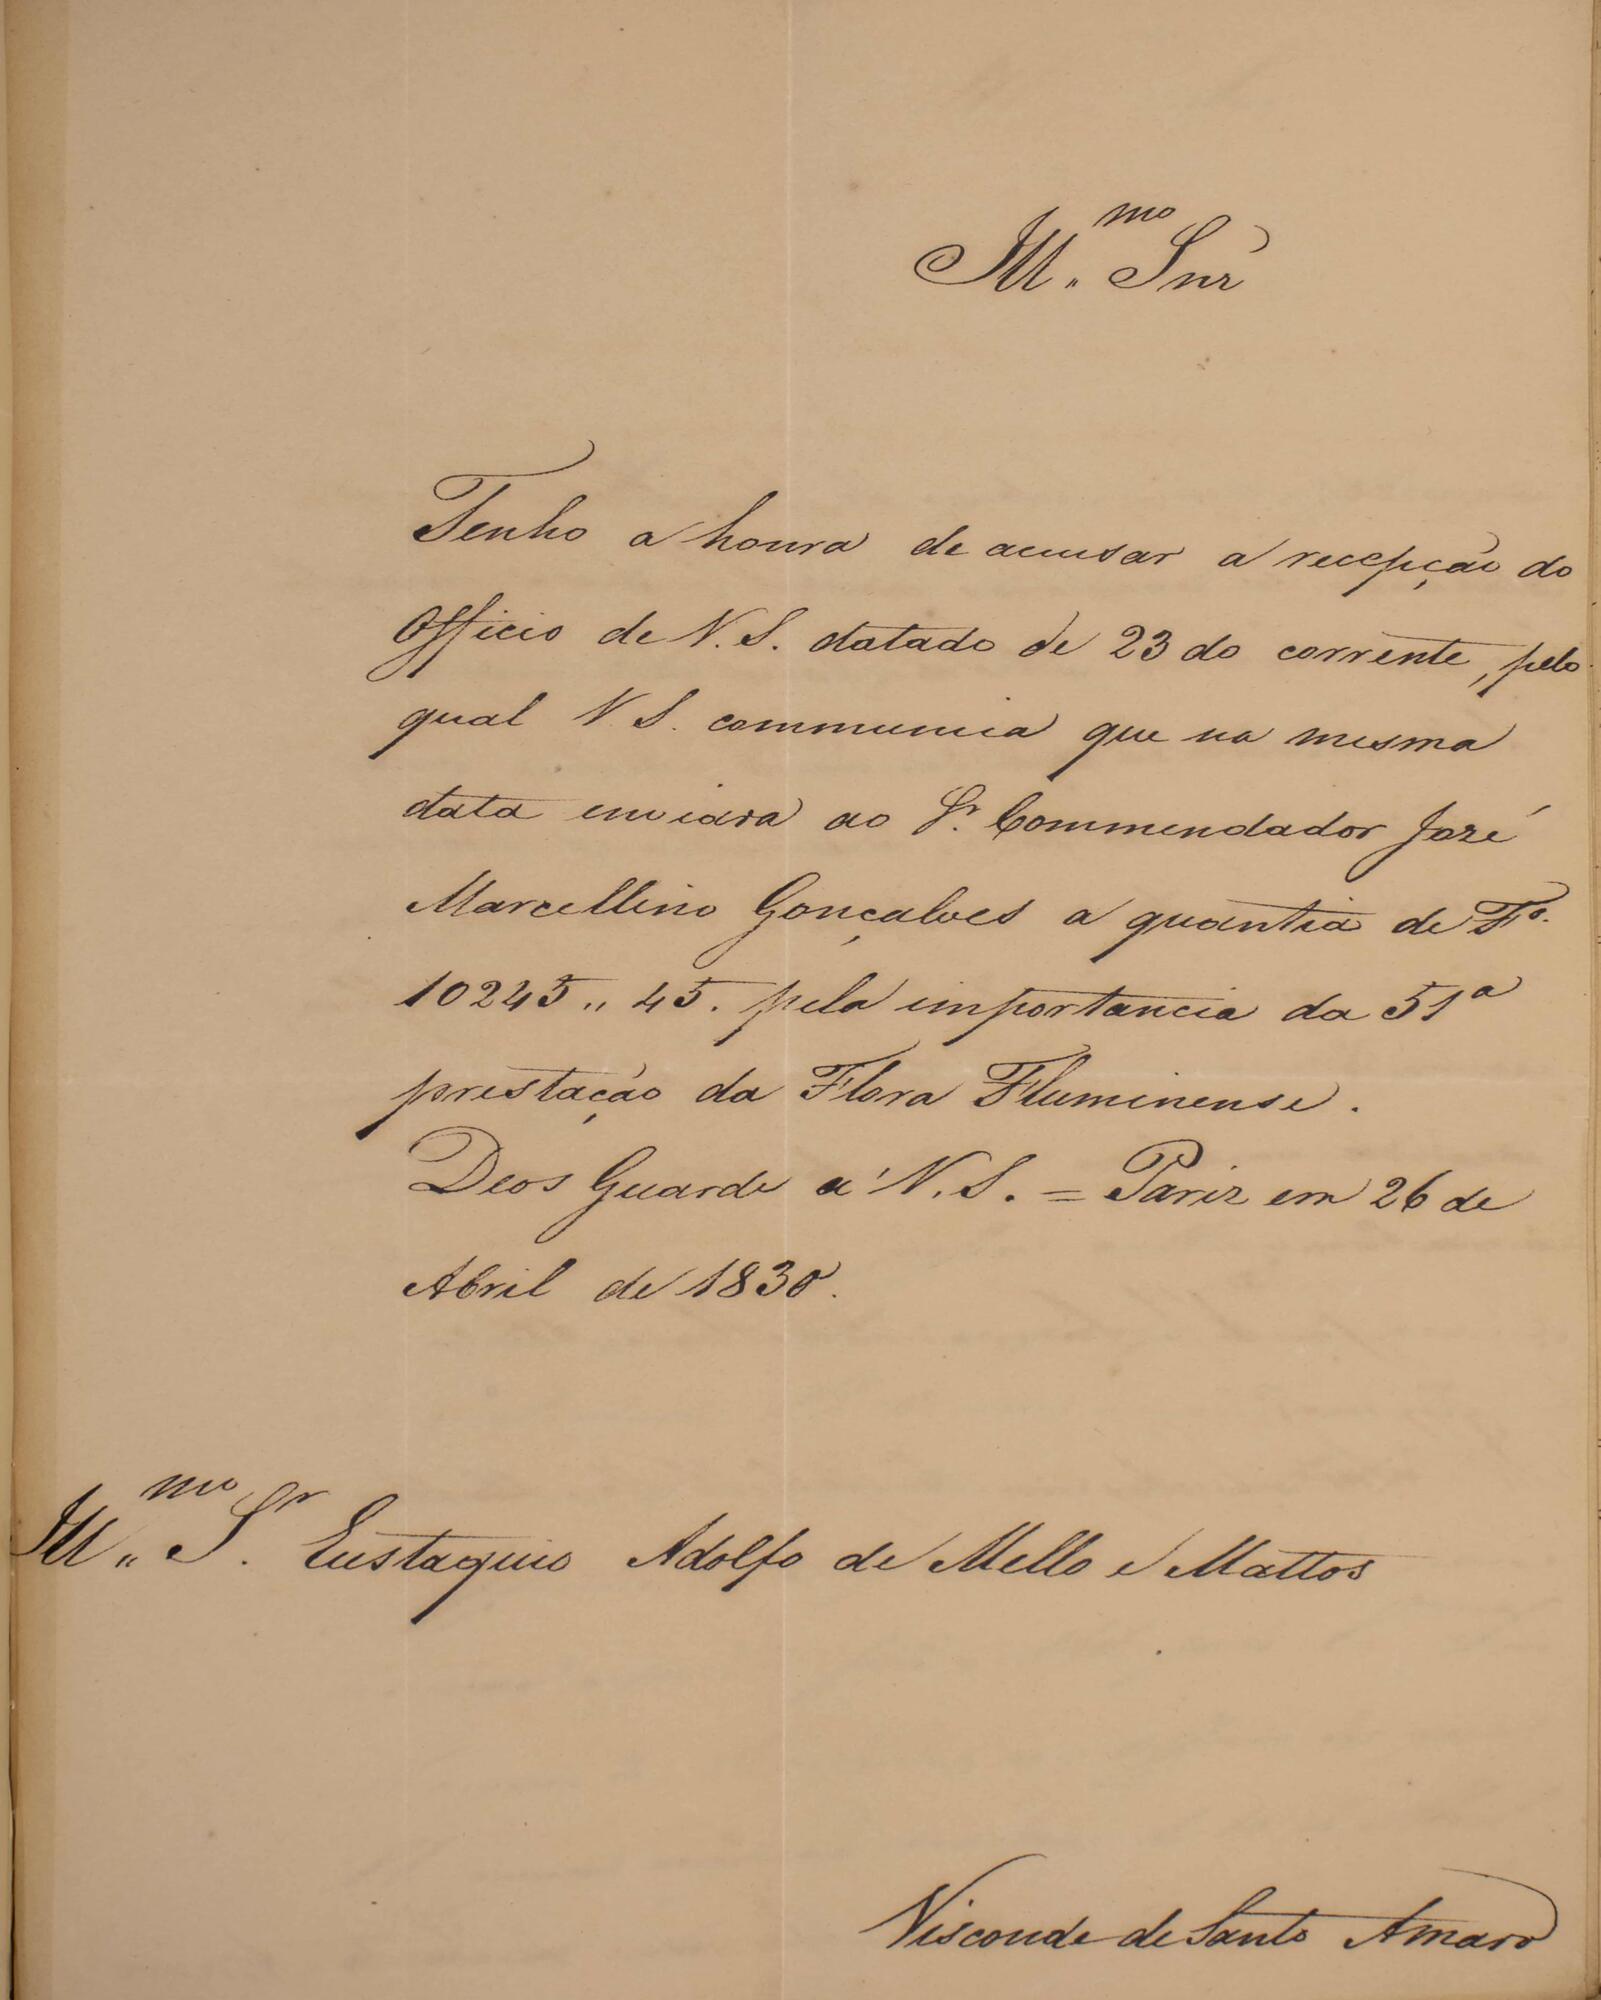 Ill.mo Snr
Tenho a honra de accusar a recepção do
Officio de V. S. datado de 23 do corrente, pelo
qual V. S. communica que na mesma
data enviára ao Sr. Commendador José
Marcellino Gonçalves a quantia de Fs.
10245,, 45. pela importancia da 51ª
prestação da Flora Fluminense.
Deos Guarde a' V. S. = Pariz em 26 de
Abril de 1830.
Ill.mo Sr. Eustaquio Adolfo de Mello e Mattos
Visconde de Santo Amaro